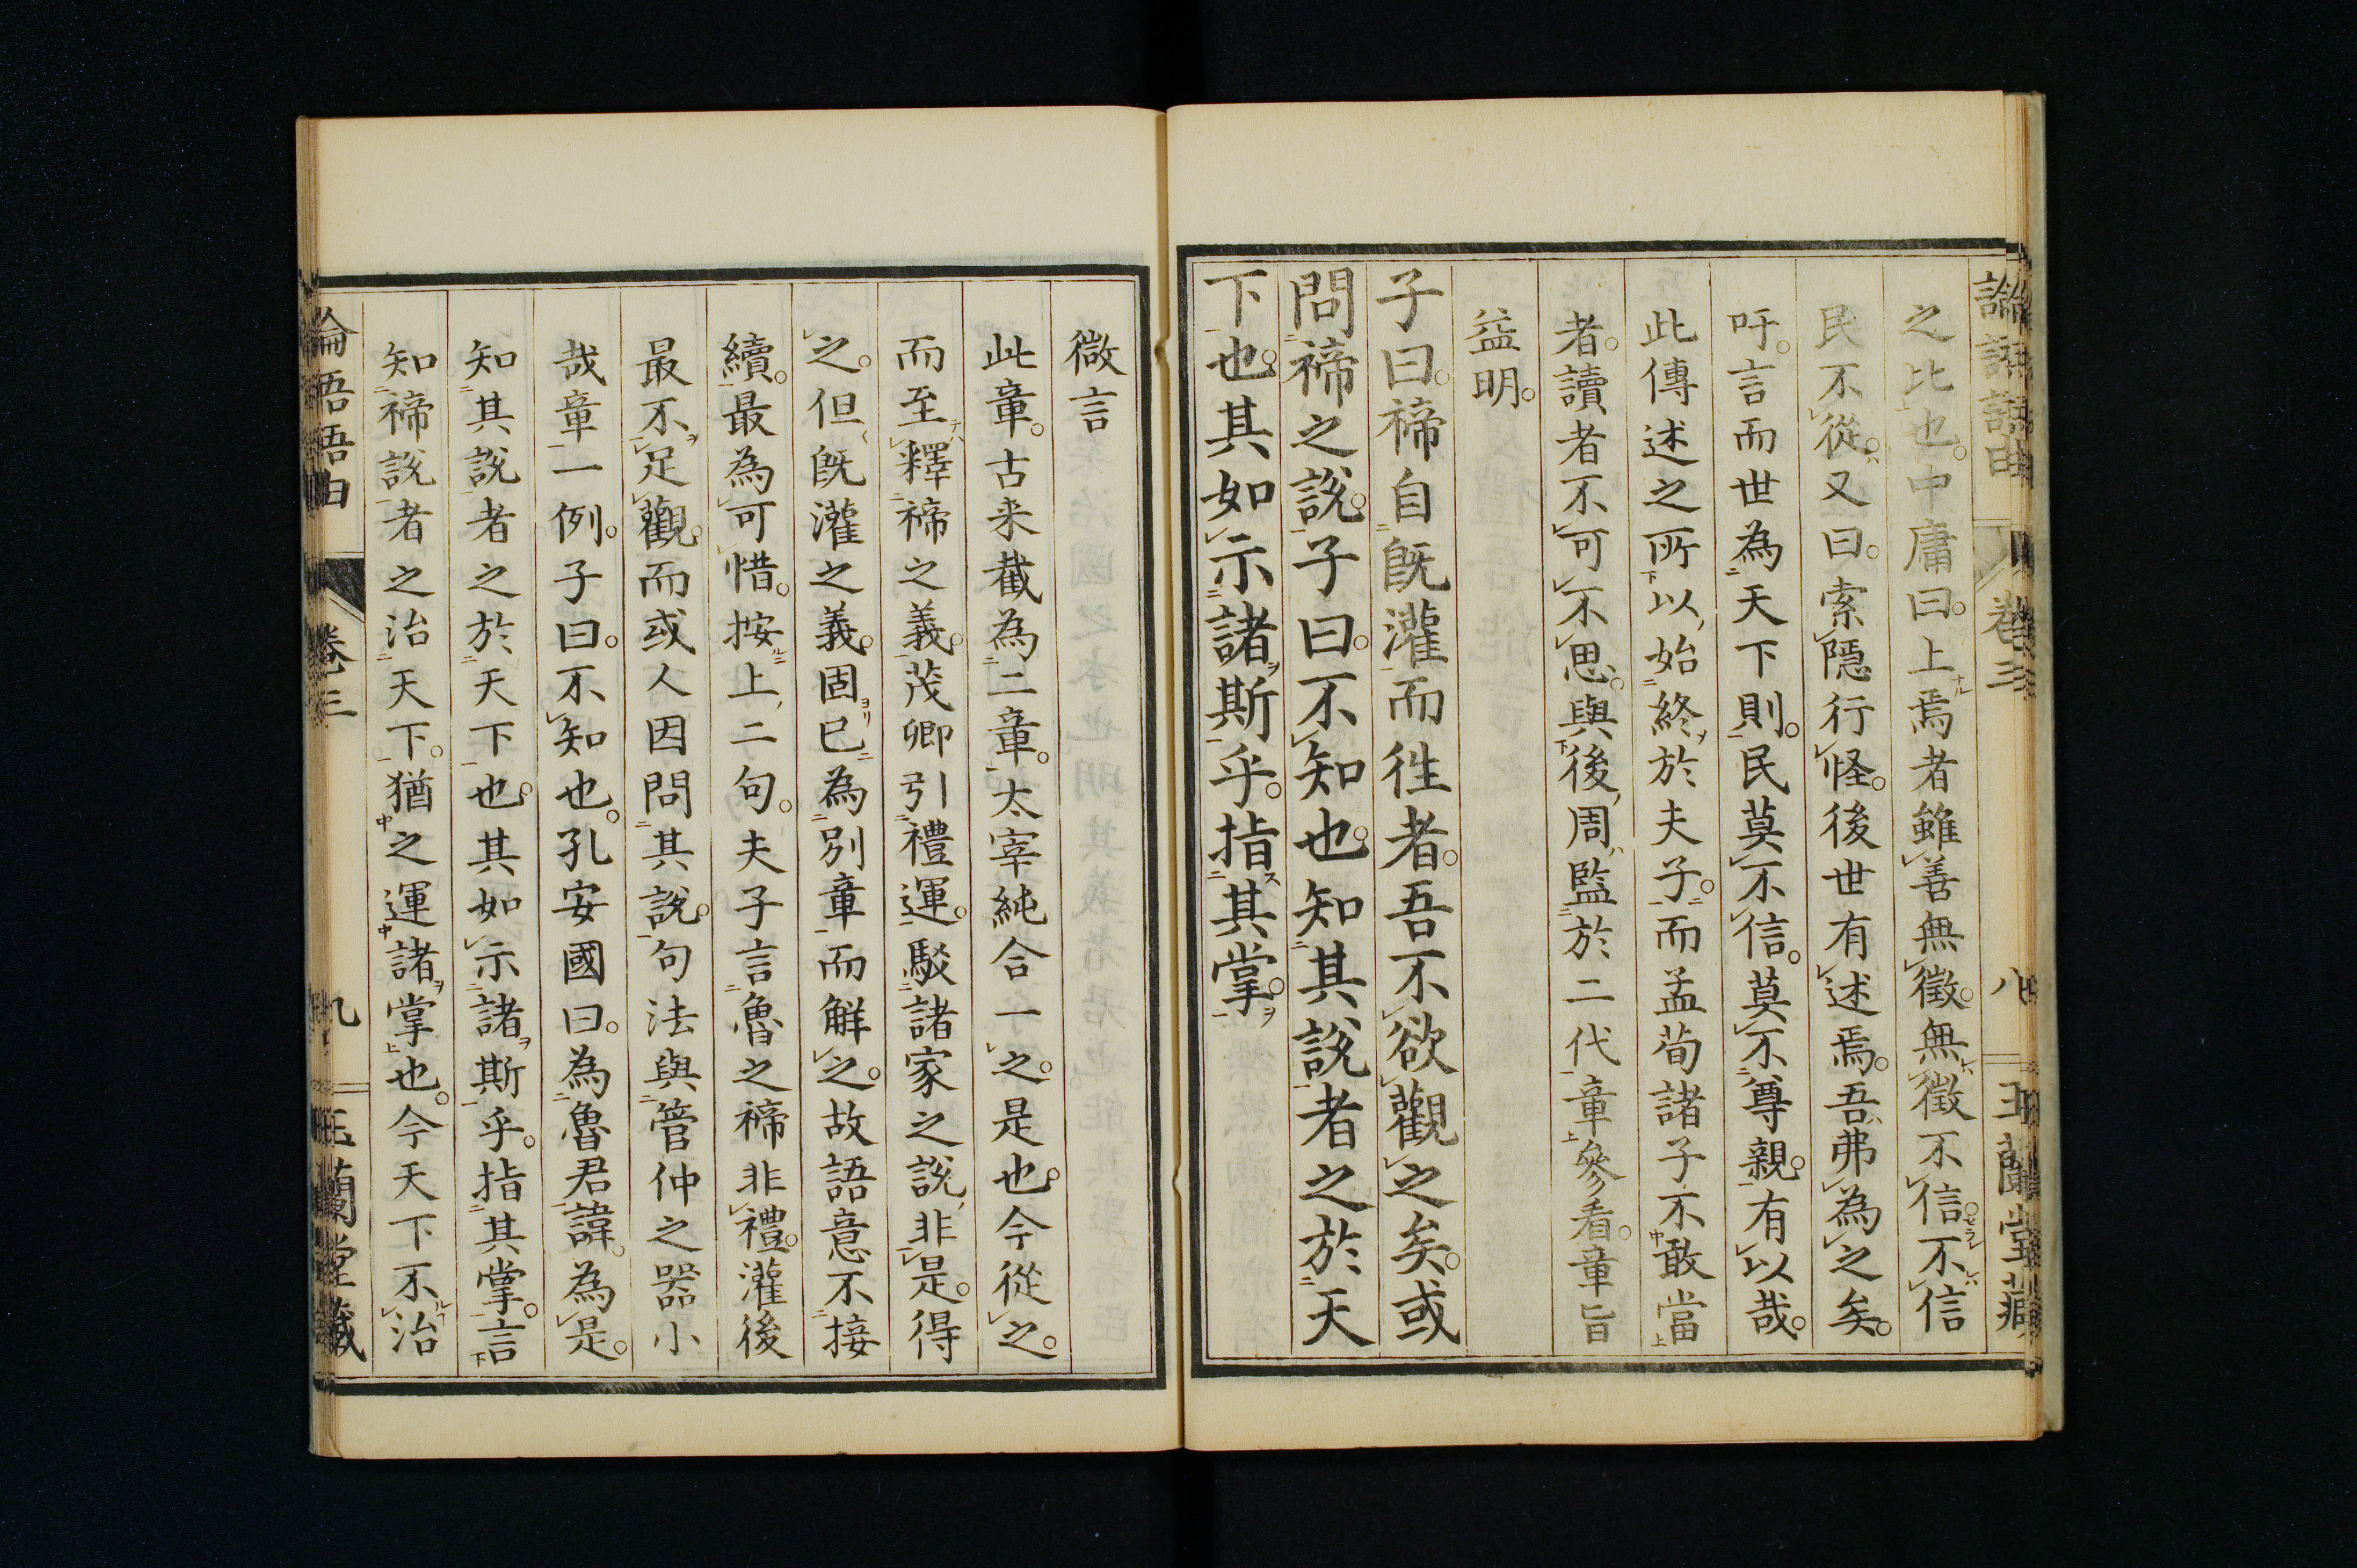 論語語由 卷三 八 玉蘭堂藏
之比也。中庸曰。上焉者雖善無徵。無徵不信。不信
民不從。又曰。索隱行怪。後世有述焉。吾弗為之矣。
吁。言而世為天下則。民莫不信。莫不尊親。有以哉。
此傳述之所以始終於夫子。而孟荀諸子不敢當
者。讀者不可不思。與後周監於二代章參看。章旨
益明。
子曰。禘自既灌而徃者。吾不欲觀之矣。或
問禘之說。子曰。不知也。知其說者之於天
下也。其如示諸斯乎。指其掌。
微言
此章。古来截為二章。太宰純合一之。是也。今從之。
而至釋禘之義。茂卿引禮運。駁諸家之說。非是。得
之。但既灌之義。固已為別章而解之。故語意不接
續。最為可惜。按上二句。夫子言魯之禘非禮。灌後
最不足觀。而或人因問其說。句法與管仲之器小
哉章一例。子曰。不知也。孔安國曰。為魯君諱。為是。
知其說者之於天下也。其如示諸斯乎。指其掌。言
知禘說者之治天下。猶之運諸掌也。今天下不治
論語語由 卷三 九 玉蘭堂藏